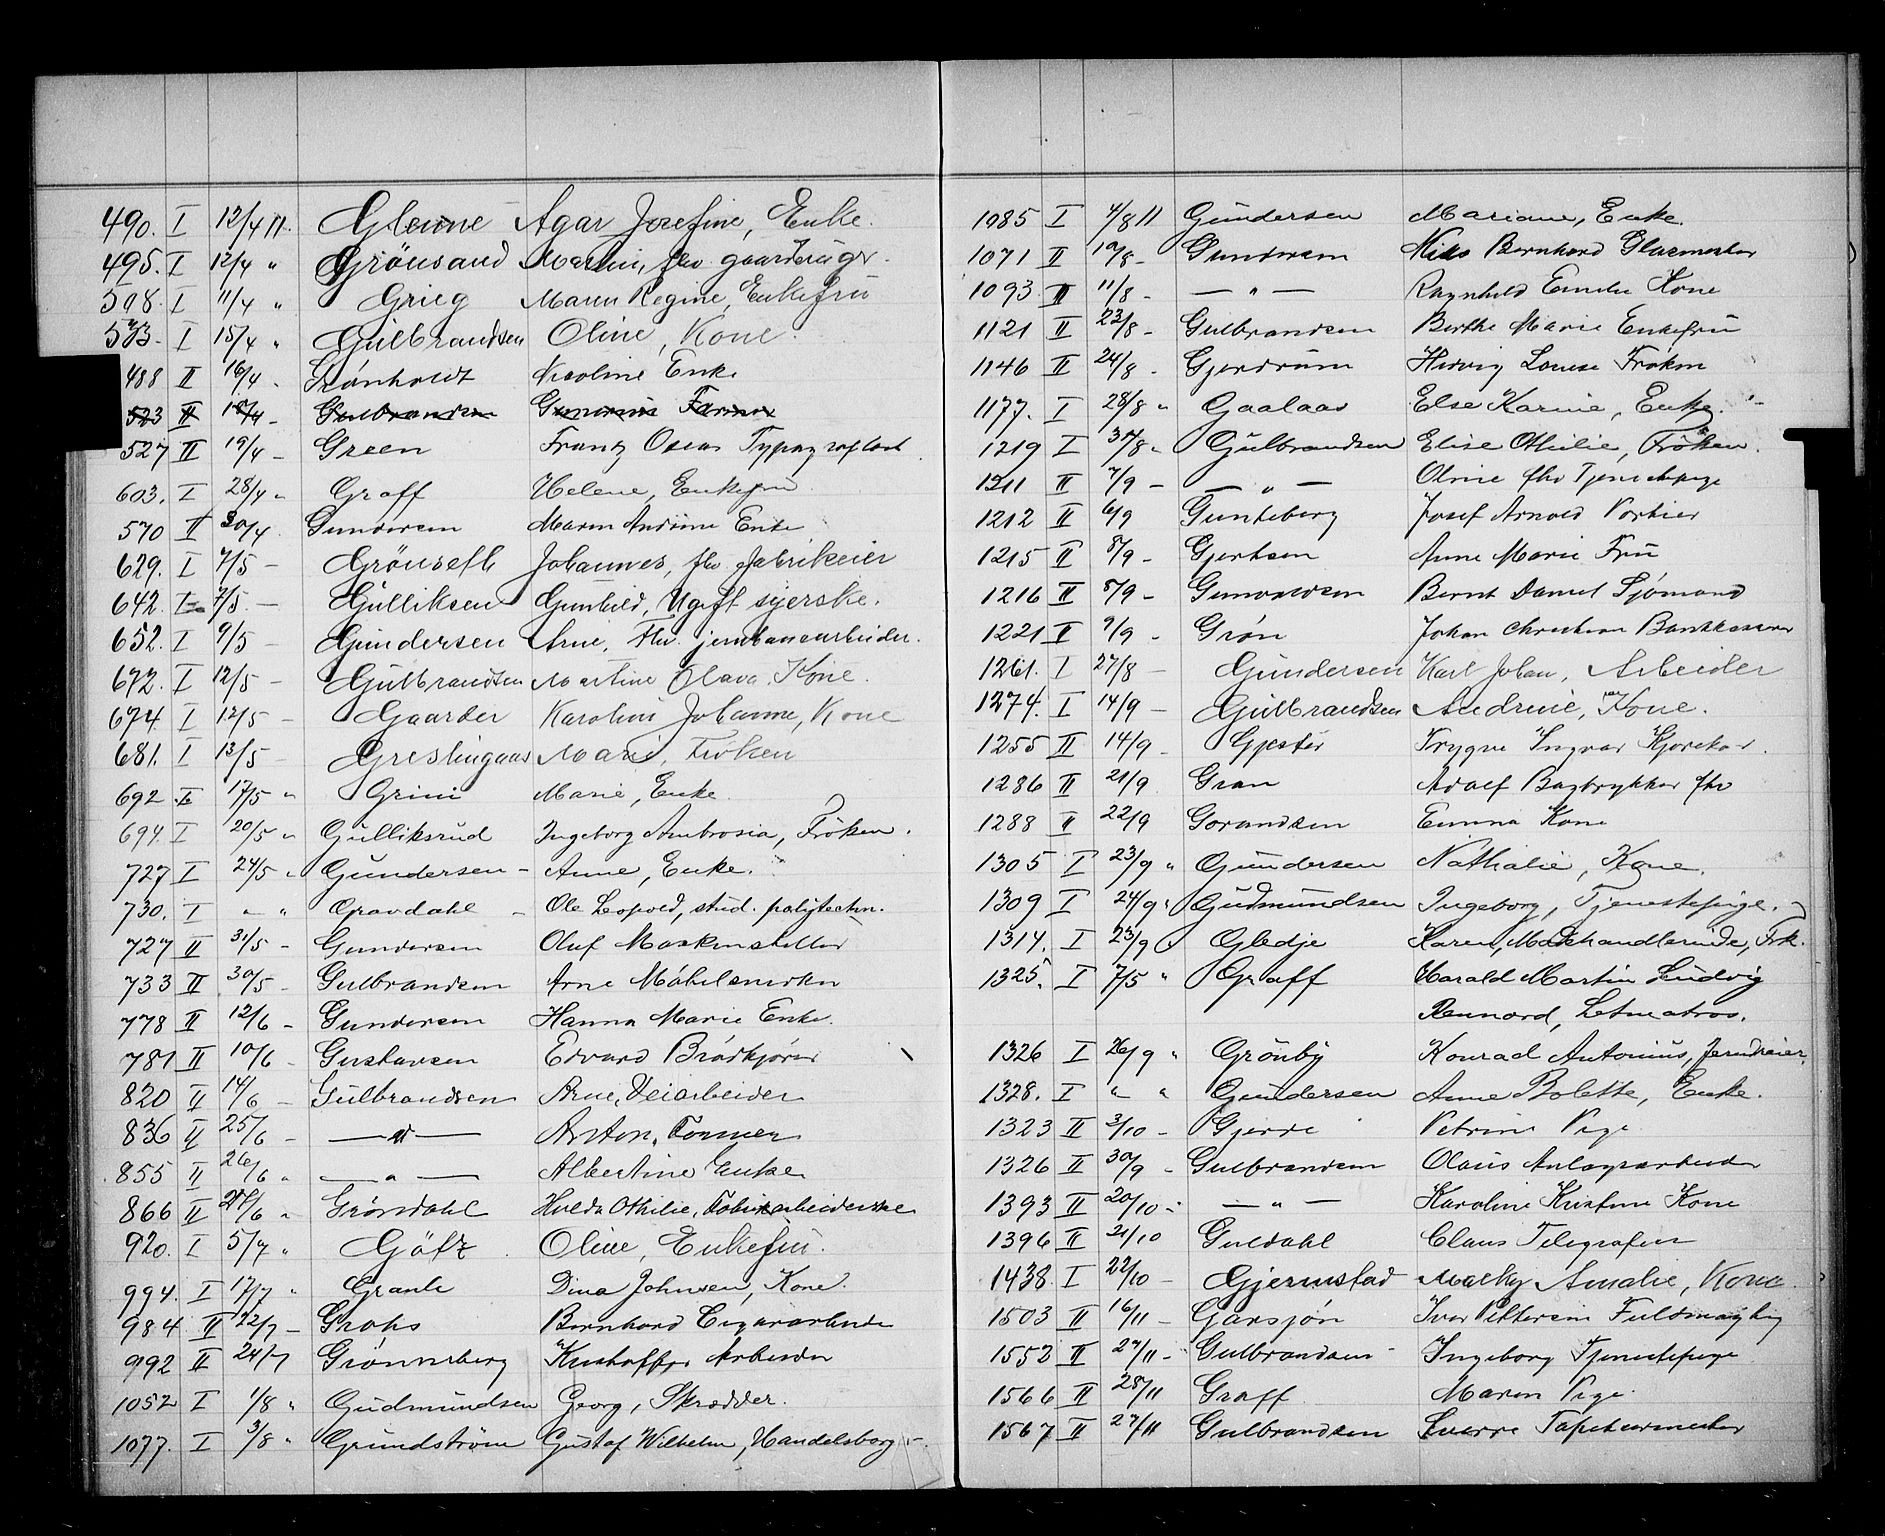 490. I 12/4 11. Gleine Agar Josefine, Enke.
495. I 12/4 " Grönsand Martin, fhv. gaardbruger.
508. I 11/4 " Grieg Maren Regine, Enkefru
I 15/4 " Gulbrandsen Oline, Kone.
488 II 16/4 Grönholdt Nicoline Enke
523 II 18/4 - Gulbrandsen Gunerius Farmer
527 II 19/4 - Green Frantz Oscar
603. I 28/4 " Graff Helene, Enkefru
570 II 30/4 Gundersen Maren Andrine Enke
629. I 7/5 - Grönseth Johannes, fhv. fabrikeier
642. I 7/5. - Gulliksen Gunhild, Ugift syerske.
652. I 9/5 - Gundersen Arne, Fhv. jernbanearbeider.
672. I 12/5 - Gulbrandsen Martine Olava, Kone.
674. I 12/5 - Gaarder Karoline Johanne, Kone
681. I 13/5 - Greslingaas Marie, Fröken
692 I 17/5 " Grini Marie, Enke.
694. I 20/5 " Gulliksrud Ingeborg Ambrosia, Fröken.
727 I 24/5 " Gundersen - Anne, Enke.
730. I " " Gravdahl - Ole Leopold, stud. polytechn.
727 II 31/5 - Gundersen Oluf Maskinstiller
733 II 30/5 - Gulbrandsen Arne Möbelsnedker
778 II 12/6 - Gundersen Hanna Marie Enke.
781 II 10/6 - Gustavsen Edvard Brödkjörer
820 II 14/6 - Gulbrandsen Arne, Veiarbeider
836 II 25/6 - — " — Anton, Tömmer
855 II 26/6 " — " — Albertine Enke
866 II 27/6 " Gröndahl Hulda Othilie, Fabrikarbeiderske
920. I 5/7 " Götz Oline, Enkefru.
994. I 17/7 " Granli Dina Johnsen, Kone.
984 II 22/7 - Grohs Bernhard Cigararbeider
992 II 24/7 Grönneberg Kristoffer Arbeider
1052 I 1/8 " Gudmundsen Georg, Skrædder.
1077. I 3/8 " Grundström Gustaf Wilhelm, Handelsborg.
1085 I 4/8 11 Gundersen Mariane, Enke.
1071 II 10/8 - Gundersen Nils Bernhard Glasmester
1093 II 11/8 - — " — Ragnhild Emilie Kone
1121 II 23/8 - Gulbrandsen Berthe Marie Enkefru
1146 II 24/8 - Gjerdrum Hedvig Louise Fröken
1177. I 28/8 " Gaalaas Else Karine, Enke.
1219 I 30/8 " Gulbrandsen Elise Othilie, Fröken.
1211 II 7/9 - — " — Oline fhv Tjenestepige
1212 II 6/9 Gunteberg Josef Arnold Portier
1215 II 8/9 - Gjertsen Anne Marie Fru
1216 II 8/9 - Gunvaldsen Bernt Daniel Sjömand
1221 II 9/9 - Grön Johan Christian Bankkasserer
1261. I 27/8 - Gundersen Karl Johan, Arbeider
1274. I 14/9 - Gulbrandsen Andrine, Kone.
1255 II 14/9 - Gjester Trygve Ingvar
1286 II 21/9 Gran Adolf Bogtrykker fhv
1288 II 22/9 Gorandsen Emma Kone
1305 I 23/9 " Gundersen Nathalie, Kone.
1309 I 24/9 " Gudmundsen Ingeborg, Tjenestepige.
1314. I 23/9 " Gledje Karen, Modehandlerinde, Frk.
1325. I 7/5 " Graff Harald Martin Ludvig
Rennord, Letmatros.
1326 I 26/9 " Grönby Konrad Antonius,
1328. I " " Gundersen Anne Bolette, Enke.
1323 II 3/10 - Gjerde Petrine Pige
1326 II 30/9 - Gulbrandsen Olaus Anlægsarbeider
1393 II 20/10 - — " — Karoline Kristine Kone
1396 II 21/10 Guldahl Claus Telegrafen
1438. I 22/10 - Gjermstad Malky Amalie, Kone.
1503 II 16/11 - Garsjön Ivar Pettersen Fuldmægtig
1553 II 27/11 - Gulbrandsen Ingeborg Tjenestepige
1566 II 28/11 Graff Maren Pige.
1567 II 27/11 Gulbrandsen Sverre Tapetsermester